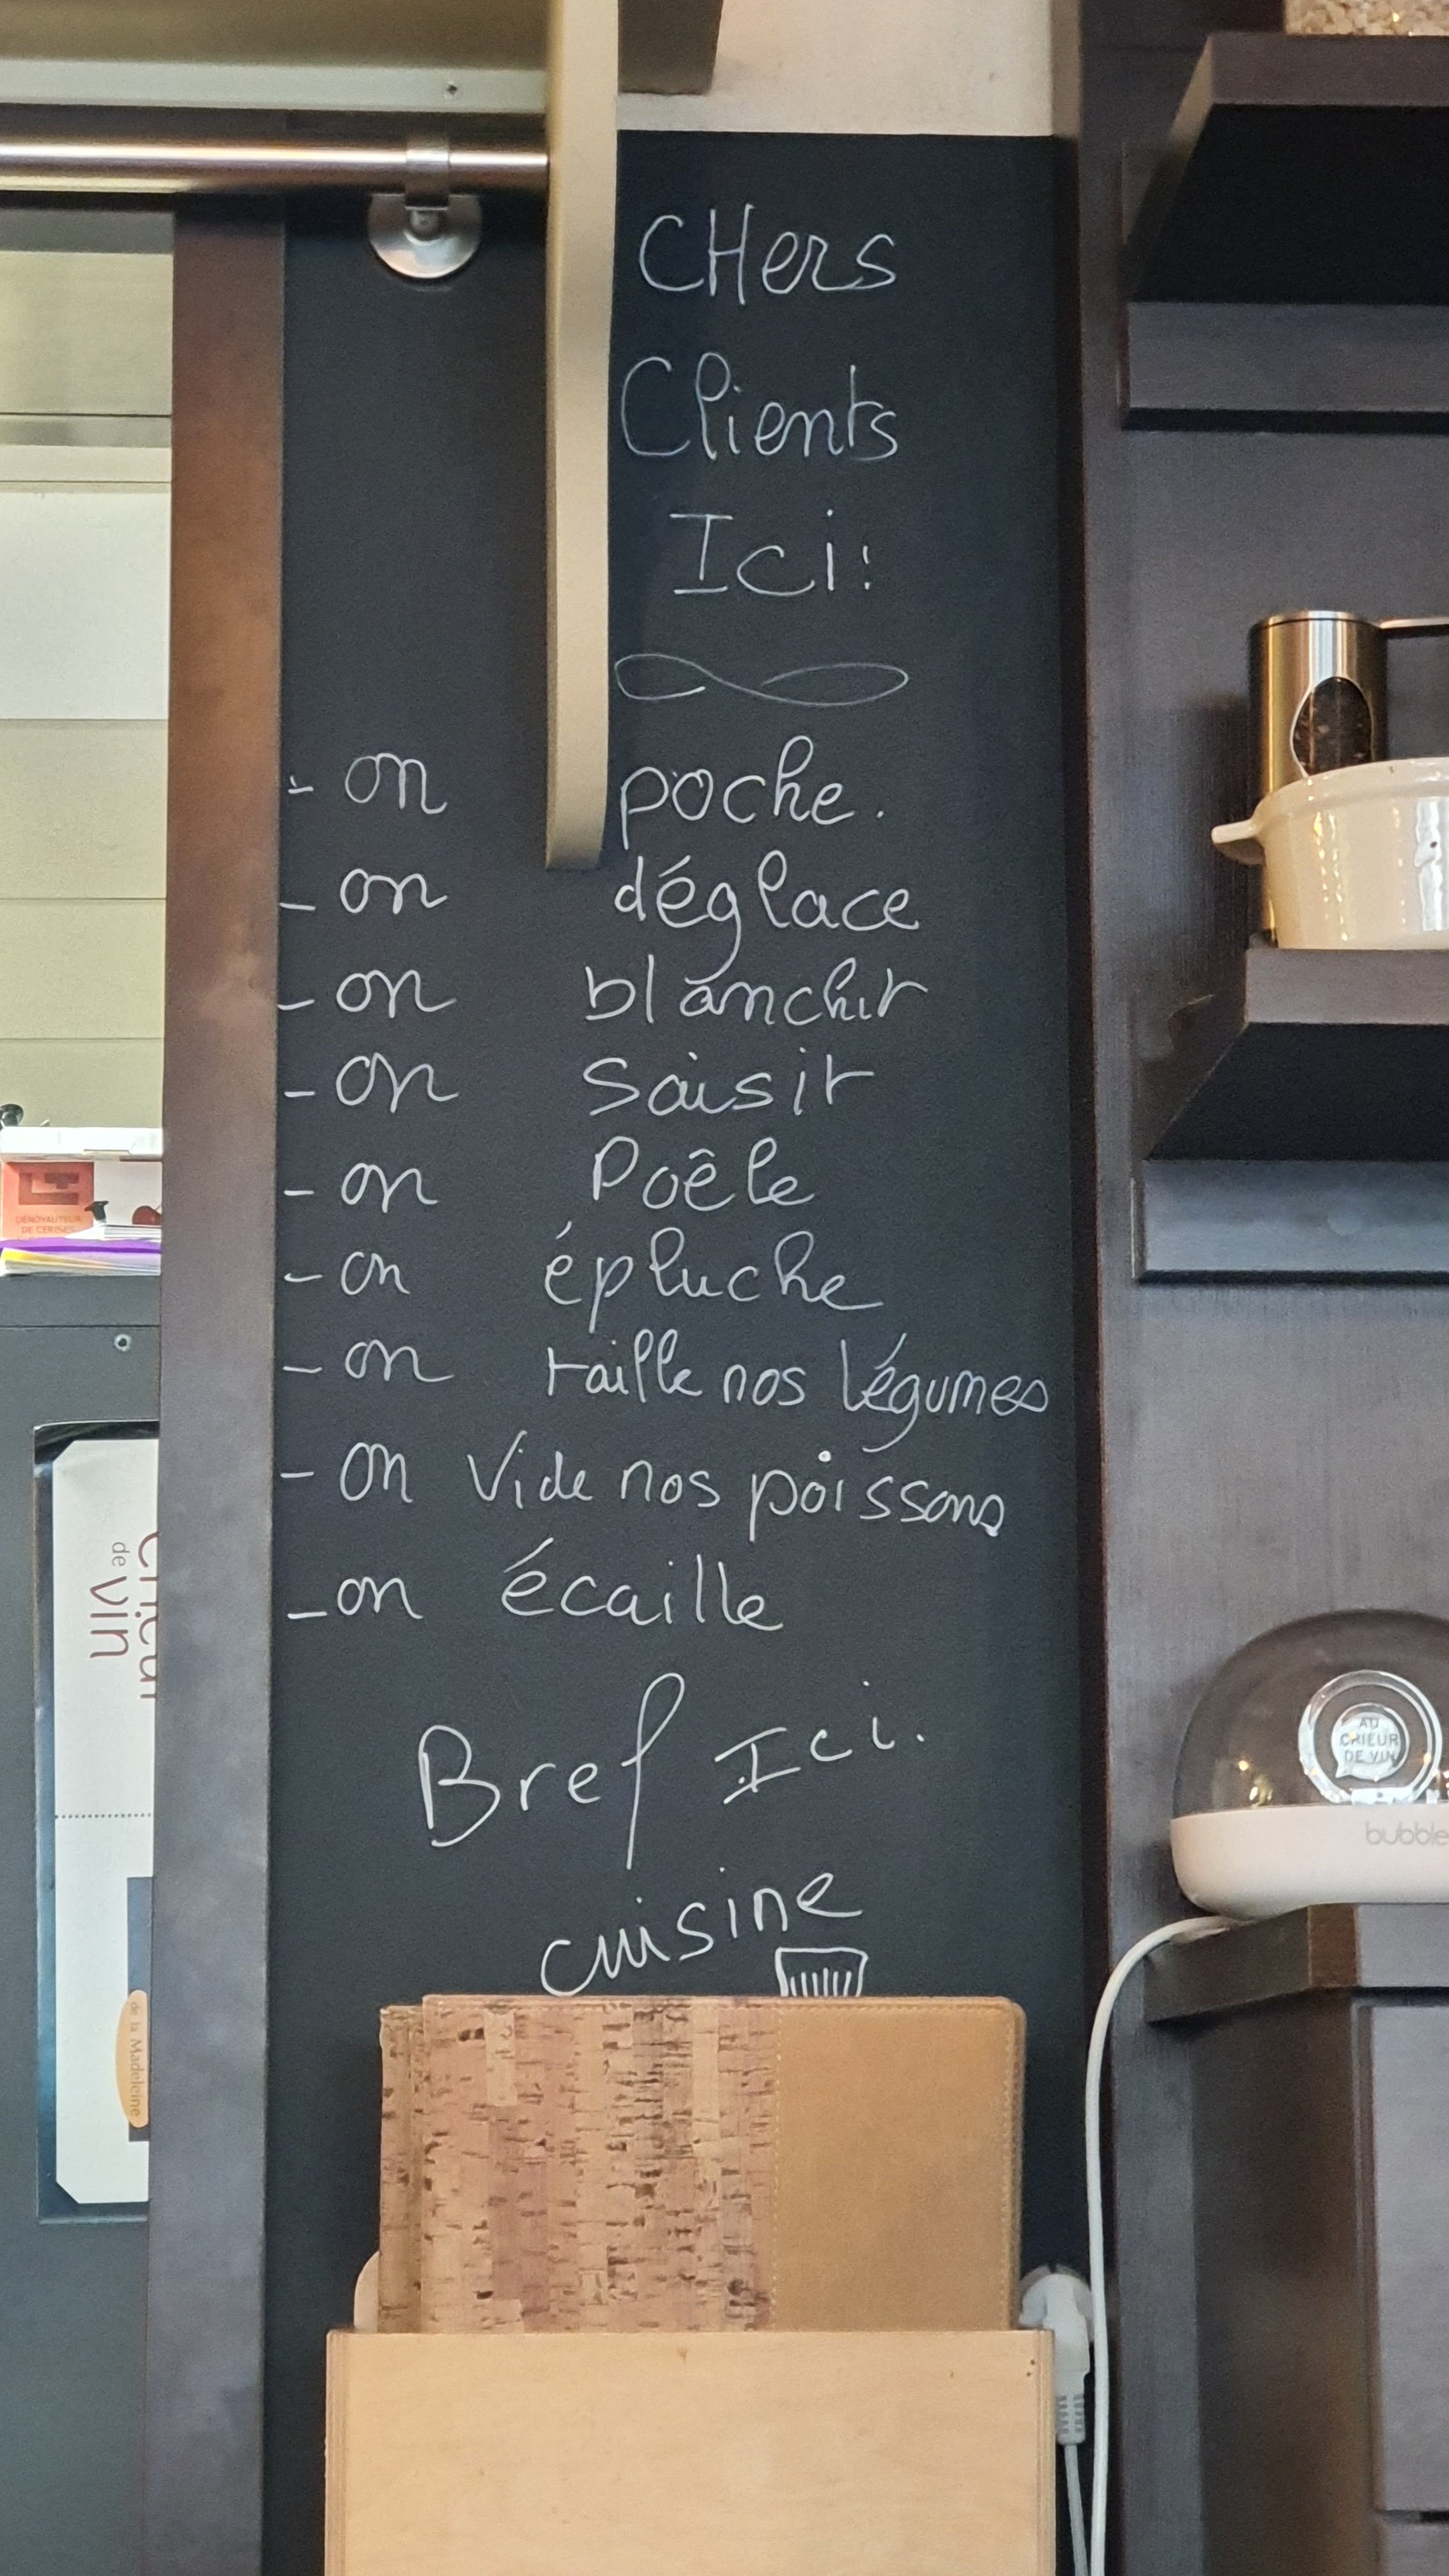 CHers
Clients
Ici:
- on poche.
- on déglace
- on blanchit
- on Saisit
- on Poêle
- on épluche
- on taille nos légumes
- on Vide nos poissons
- on écaille
Bref Ici.
cuisine
DÉNOYAUTEUR
DE CERISES
de vin
de la Madeleine
AU
CRIEUR
DE VIN
bubble